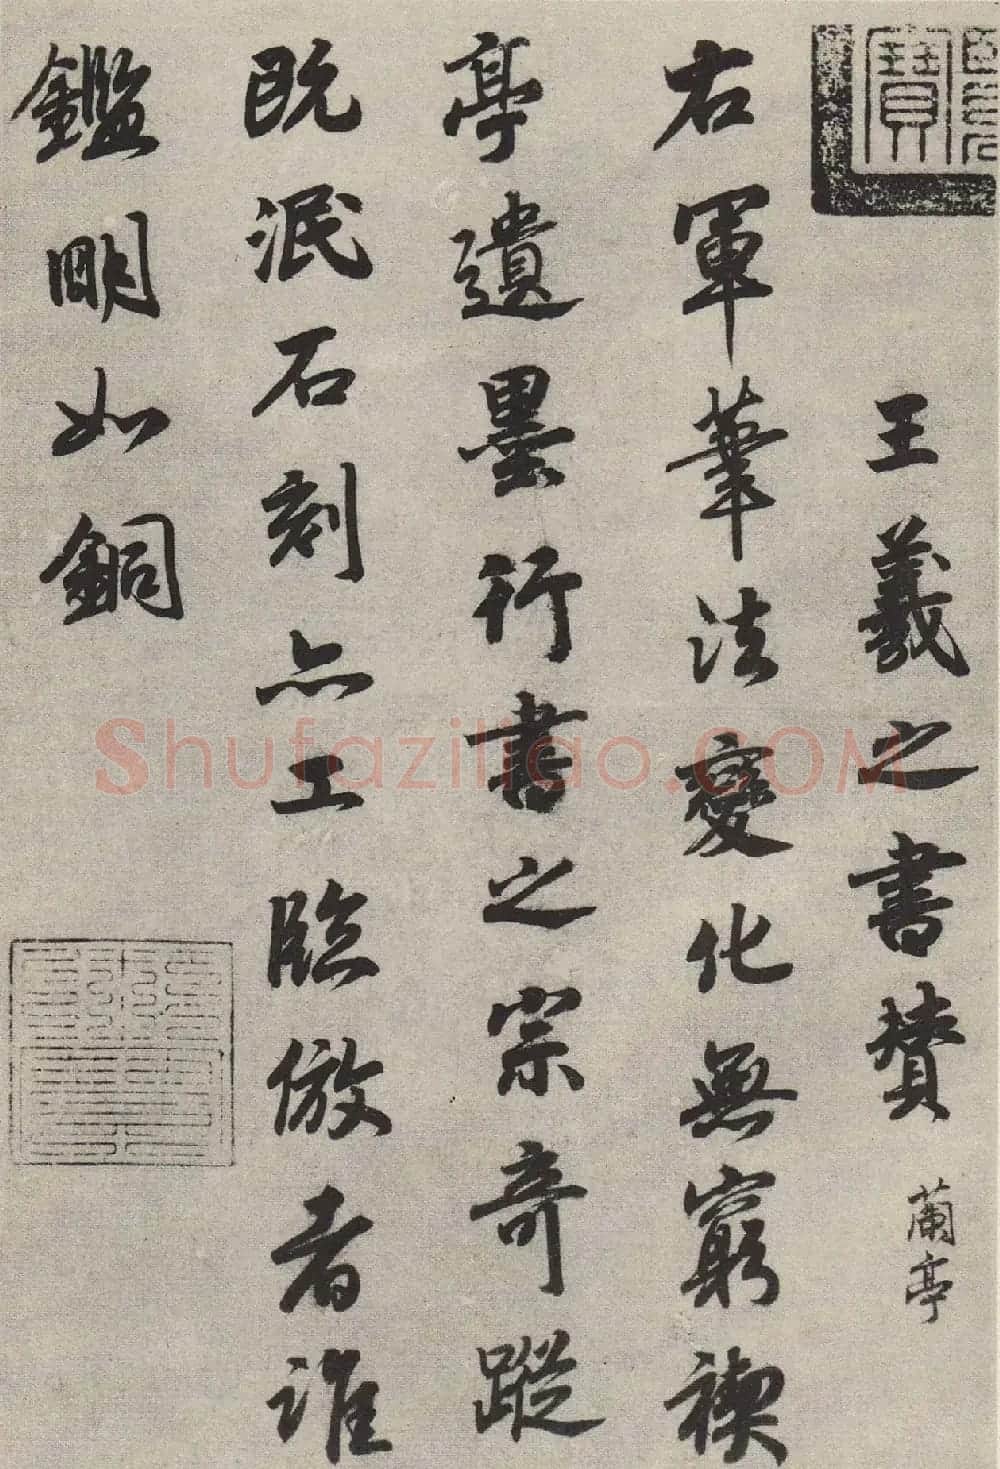 王羲之書贊 蘭亭
右軍筆法變化無窮禊
亭遺墨行書之宗奇蹤
既泯石刻亦工臨倣者誰
鑑明如銅
Shufaziliao.COM